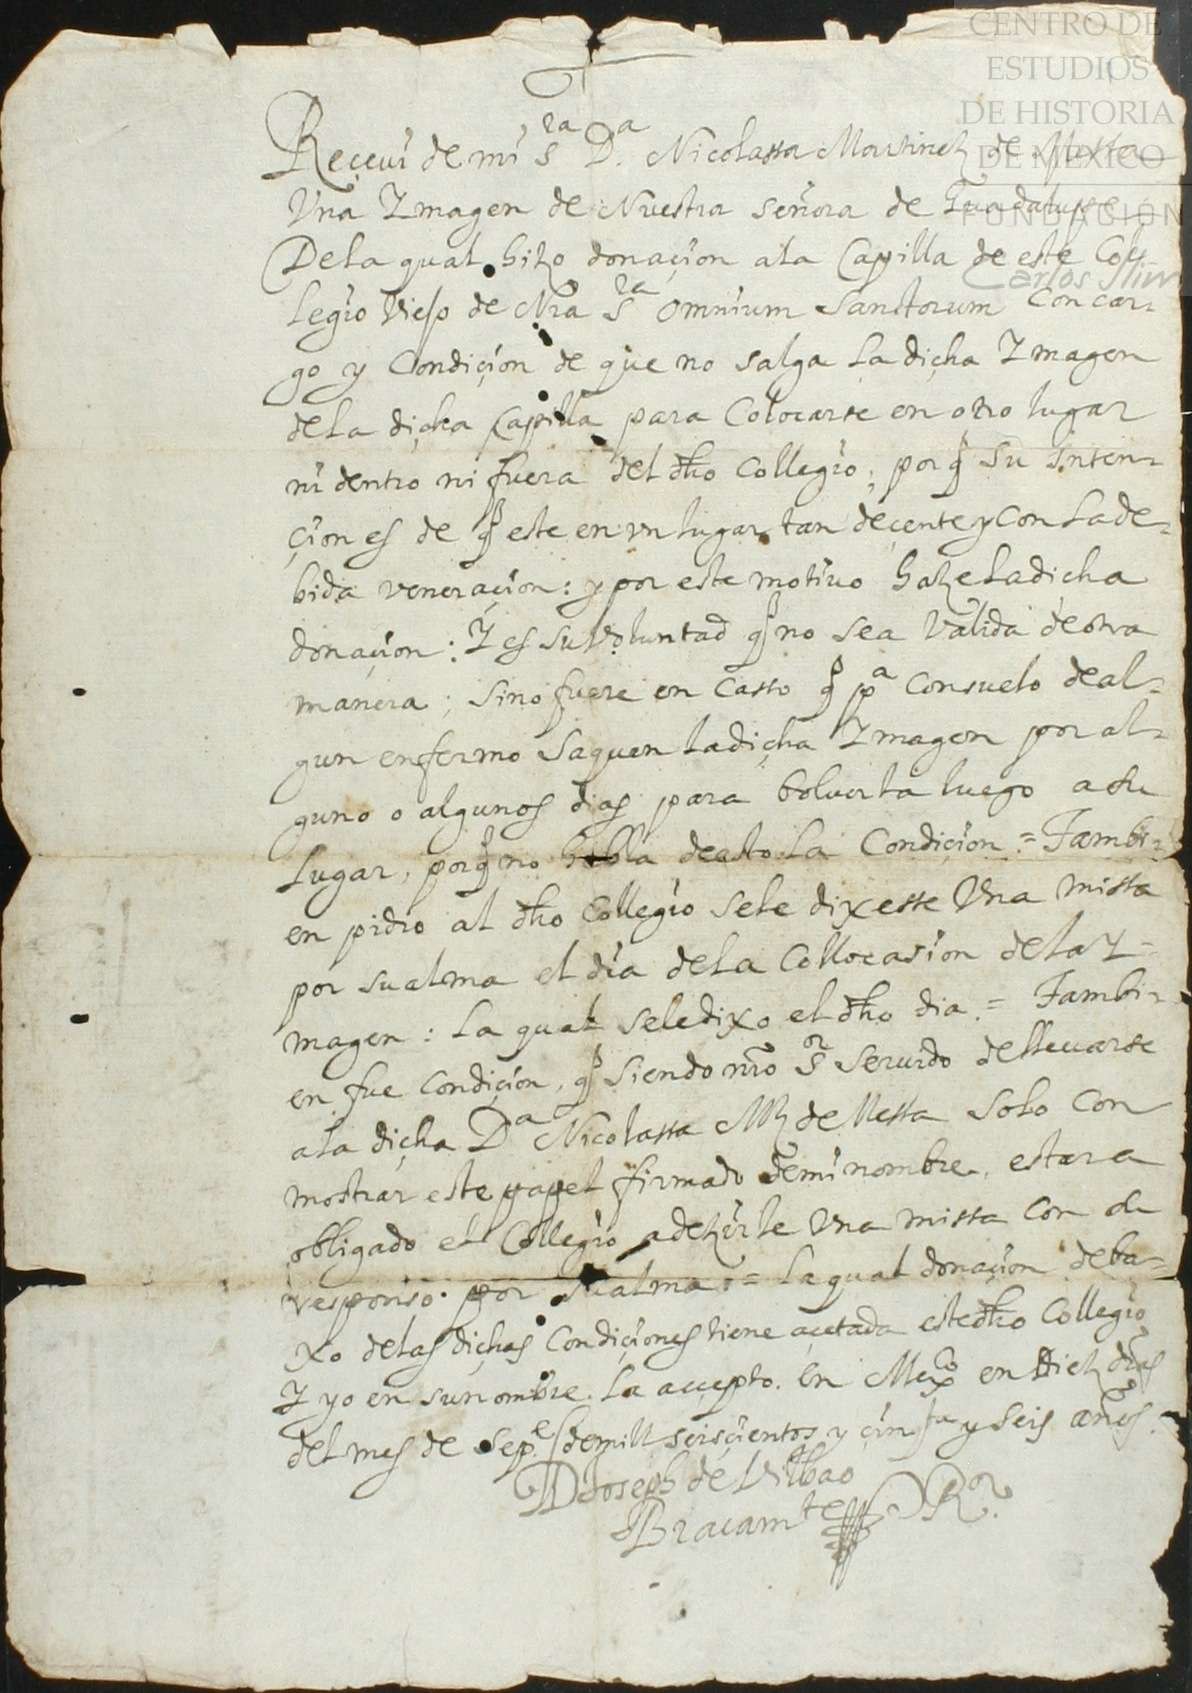 CENTRO DE
ESTUDIOS
DE HISTORIA
DE MÉXICO
FUNDACIÓN
Carlos Slim
Reçeui de mi Sra Da. Nicolassa Martinez de
Vna Ymagen de Nuestra señora de Guadalupe
Dela qual hizo donaçion ala Capilla de este Col-
legio Viejo de Nra Sra Omnium Sanctorum Con car-
go y Condiçion de que no salga La diçha Ymagen
dela diçha Capilla para Colocarse en otro lugar
ni dentro ni fuera del dho Collegio; porq su inten-
çion es de q este en vn lugar tan deçente y con La de-
bida veneraçion: y por este motiuo haze La dicha
donaçion: Y es su Voluntad q no sea Valida de otra
manera; sino fuere en Casso q pa Consuelo de al-
gun enfermo saquen La diçha Ymagen por al-
guno o algunos dias para boluerla luego a su
Lugar, porq no habla de esto La Condiçion = Tambi-
en pidio al dho Collegio se le dixesse Vna missa
por su alma el dia dela Collocasion de la Y-
magen: La qual se le dixo el dho dia = Tambi-
en fue Condiçion, q siendo nro Sr seruido de lleuarse
ala diçha Da Nicolassa Mrz de Solo Con
mostrar este papel firmado de mi nombre, estara
obligado el Collegio a dezirle Vna missa con su
responso por su alma = La qual donaçion deba-
xo de las diçhas Condiçiones tiene açetada este dho Collegio
Y yo en su nombre La accepto. En Mexco en Diez dias
del mes de Sepe de mill seisçientos y çinqta y seis años.
D Joseph de Vilbao
Bracamte Rr.